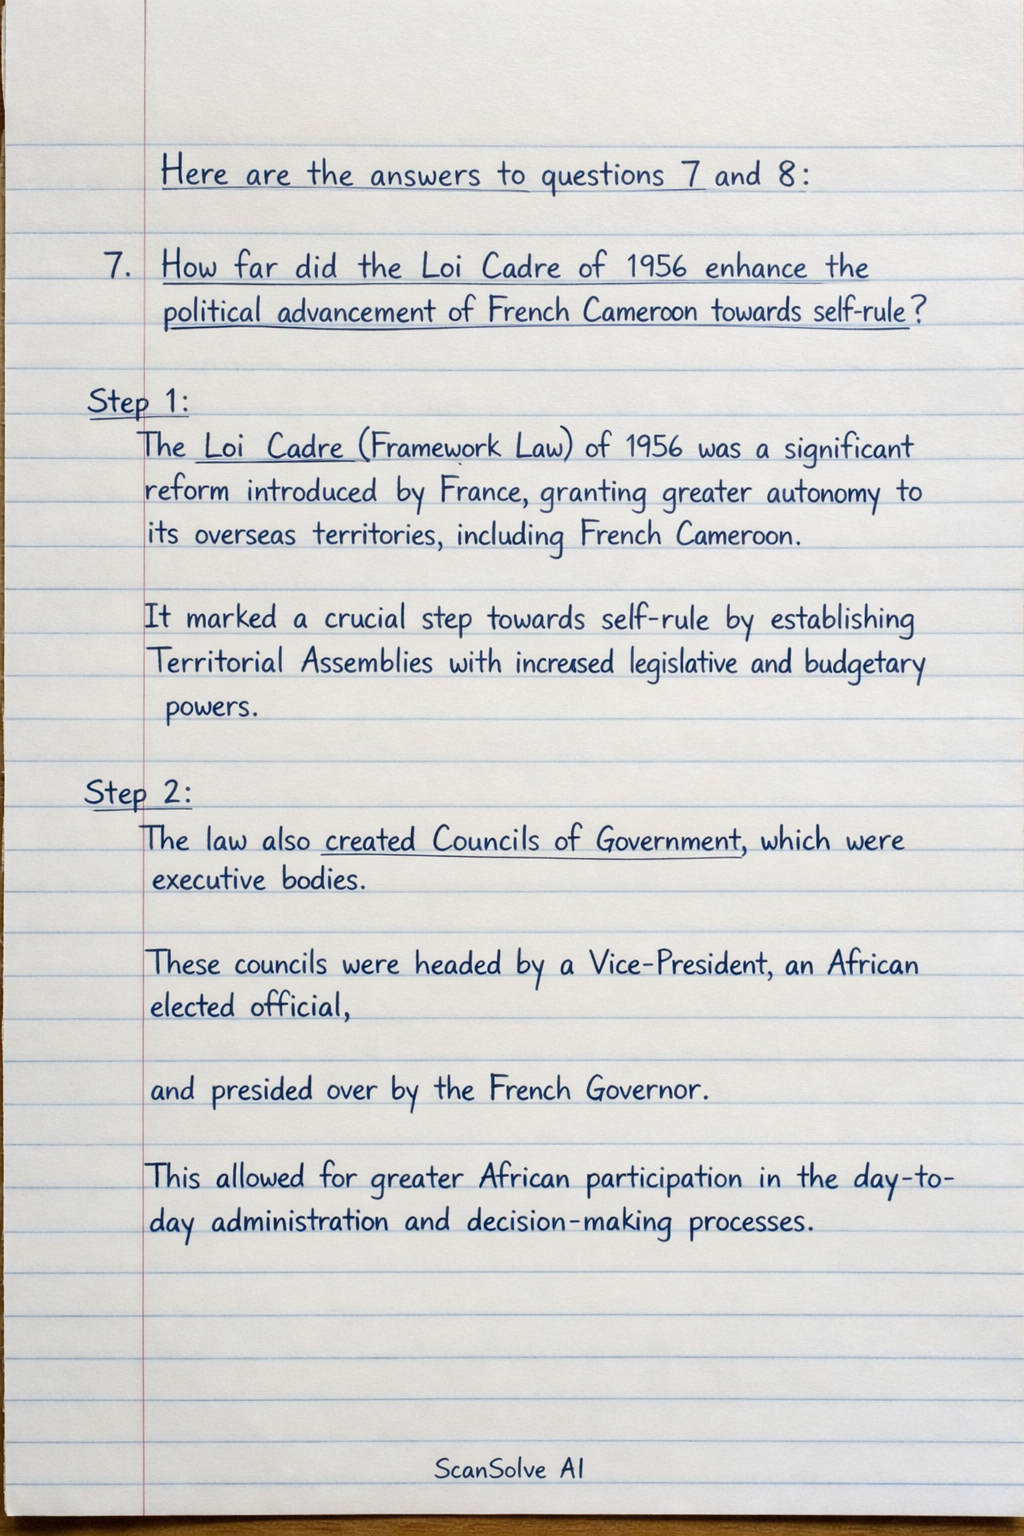 Here are the answers to questions 7 and 8:
7. How far did the Loi Cadre of 1956 enhance the
political advancement of French Cameroon towards self-rule?
Step 1:
The Loi Cadre (Framework Law) of 1956 was a significant
reform introduced by France, granting greater autonomy to
its overseas territories, including French Cameroon.
It marked a crucial step towards self-rule by establishing
Territorial Assemblies with increased legislative and budgetary
powers.
Step 2:
The law also created Councils of Government, which were
executive bodies.
These councils were headed by a Vice-President, an African
elected official,
and presided over by the French Governor.
This allowed for greater African participation in the day-to-
day administration and decision-making processes.
ScanSolve AI